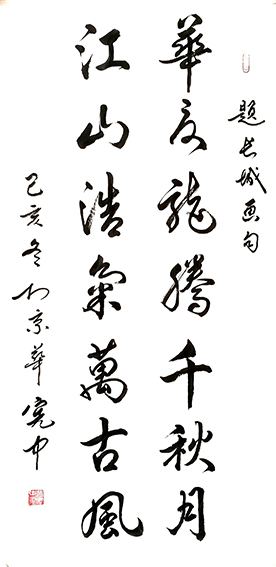 題長城画句
華夏龍騰千秋月
江山浩氣萬古風
己亥冬於京華